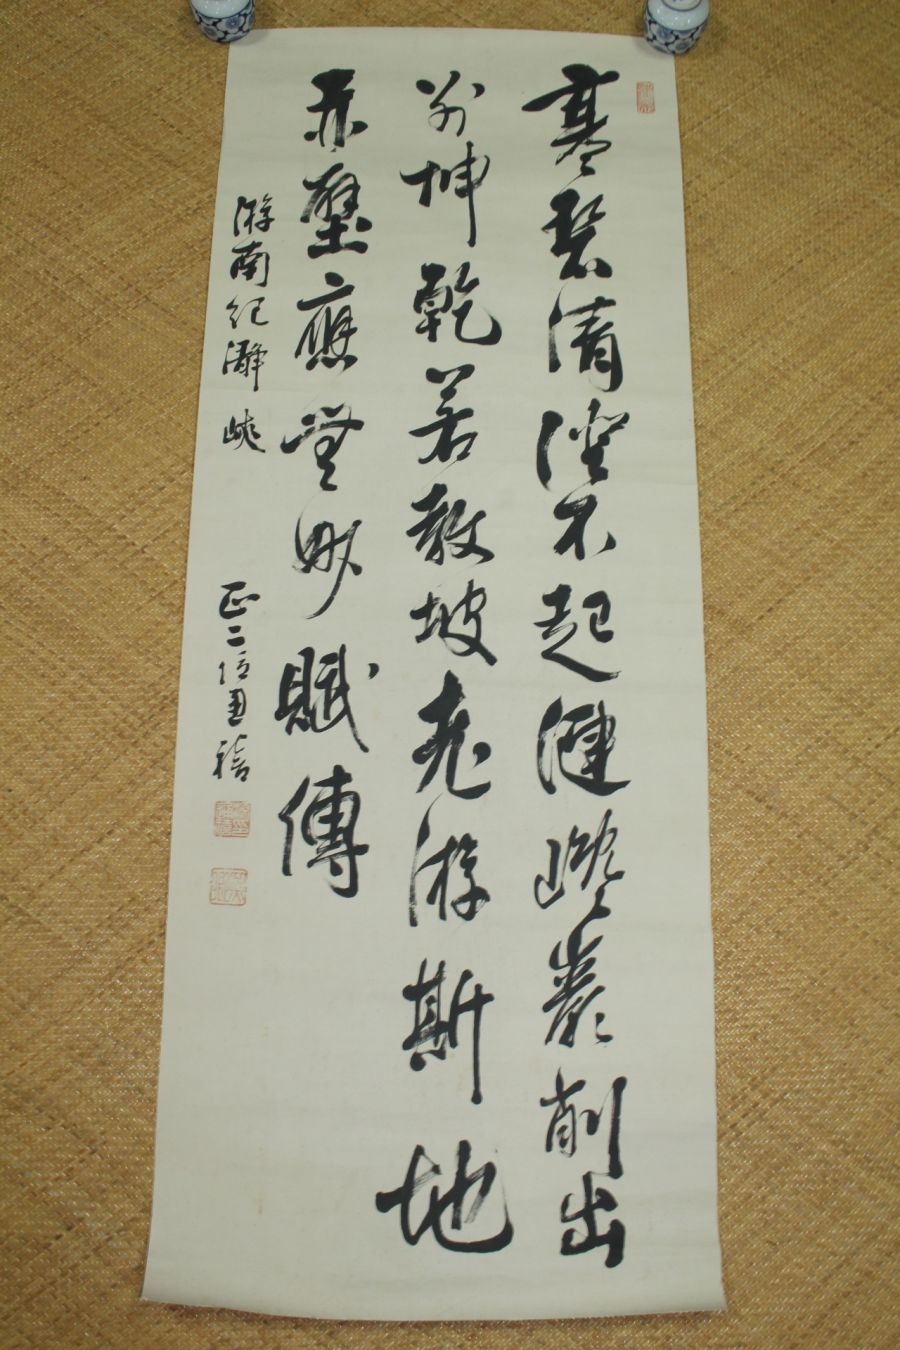 寒碧清澄不起漣巉巖削出
別坤乾若教坡老游斯地
赤壁應無両賦傳
游南紀瀞峡
正二位